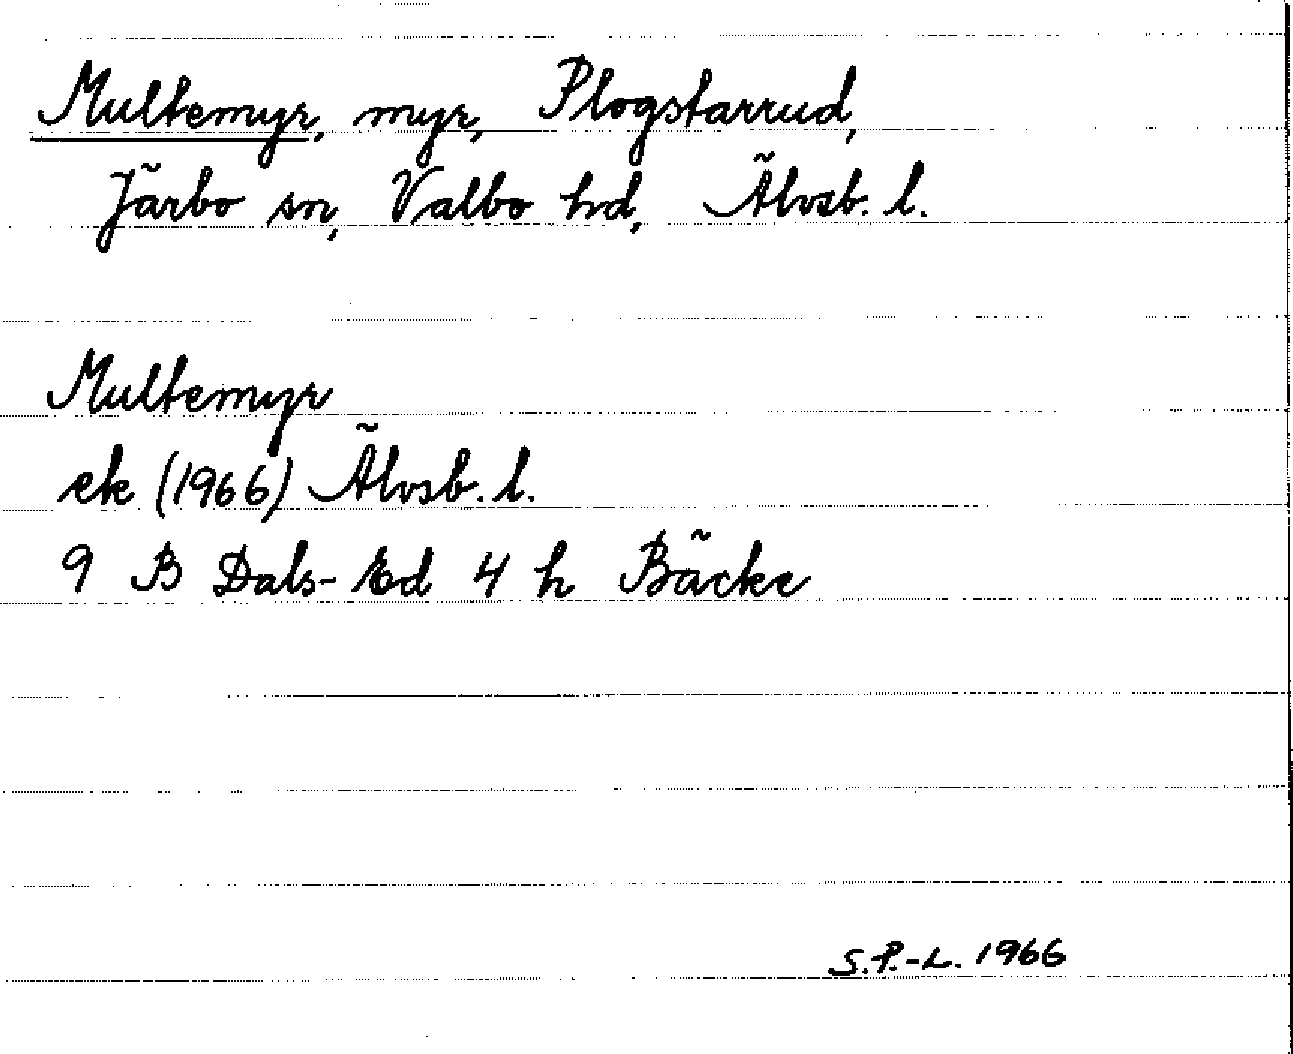 Multemyr, myr, Plogstarrud,
Järbo sn, Valbo hd, Älvsb. l.
Multemyr
ek (1966) Älvsb. l.
9 B Dals-Ed 4 h Bäcke
S.P.-L. 1966